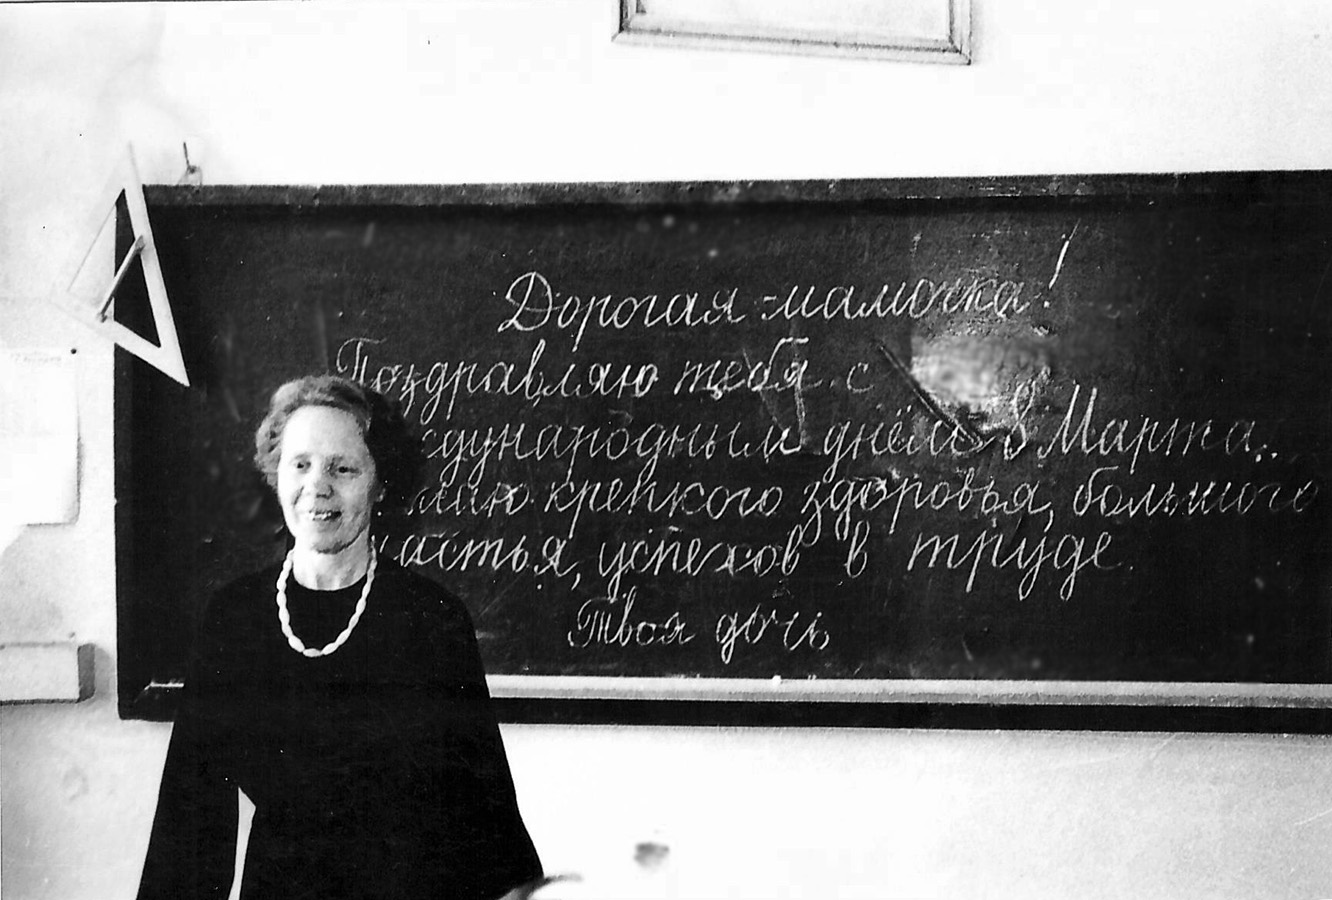 Дорогая мамочка!
Поздравляю тебя с
ждународным днём 8 Марта.
лаю крепкого здоровья, большого
частья, успехов в труде.
Твоя дочь